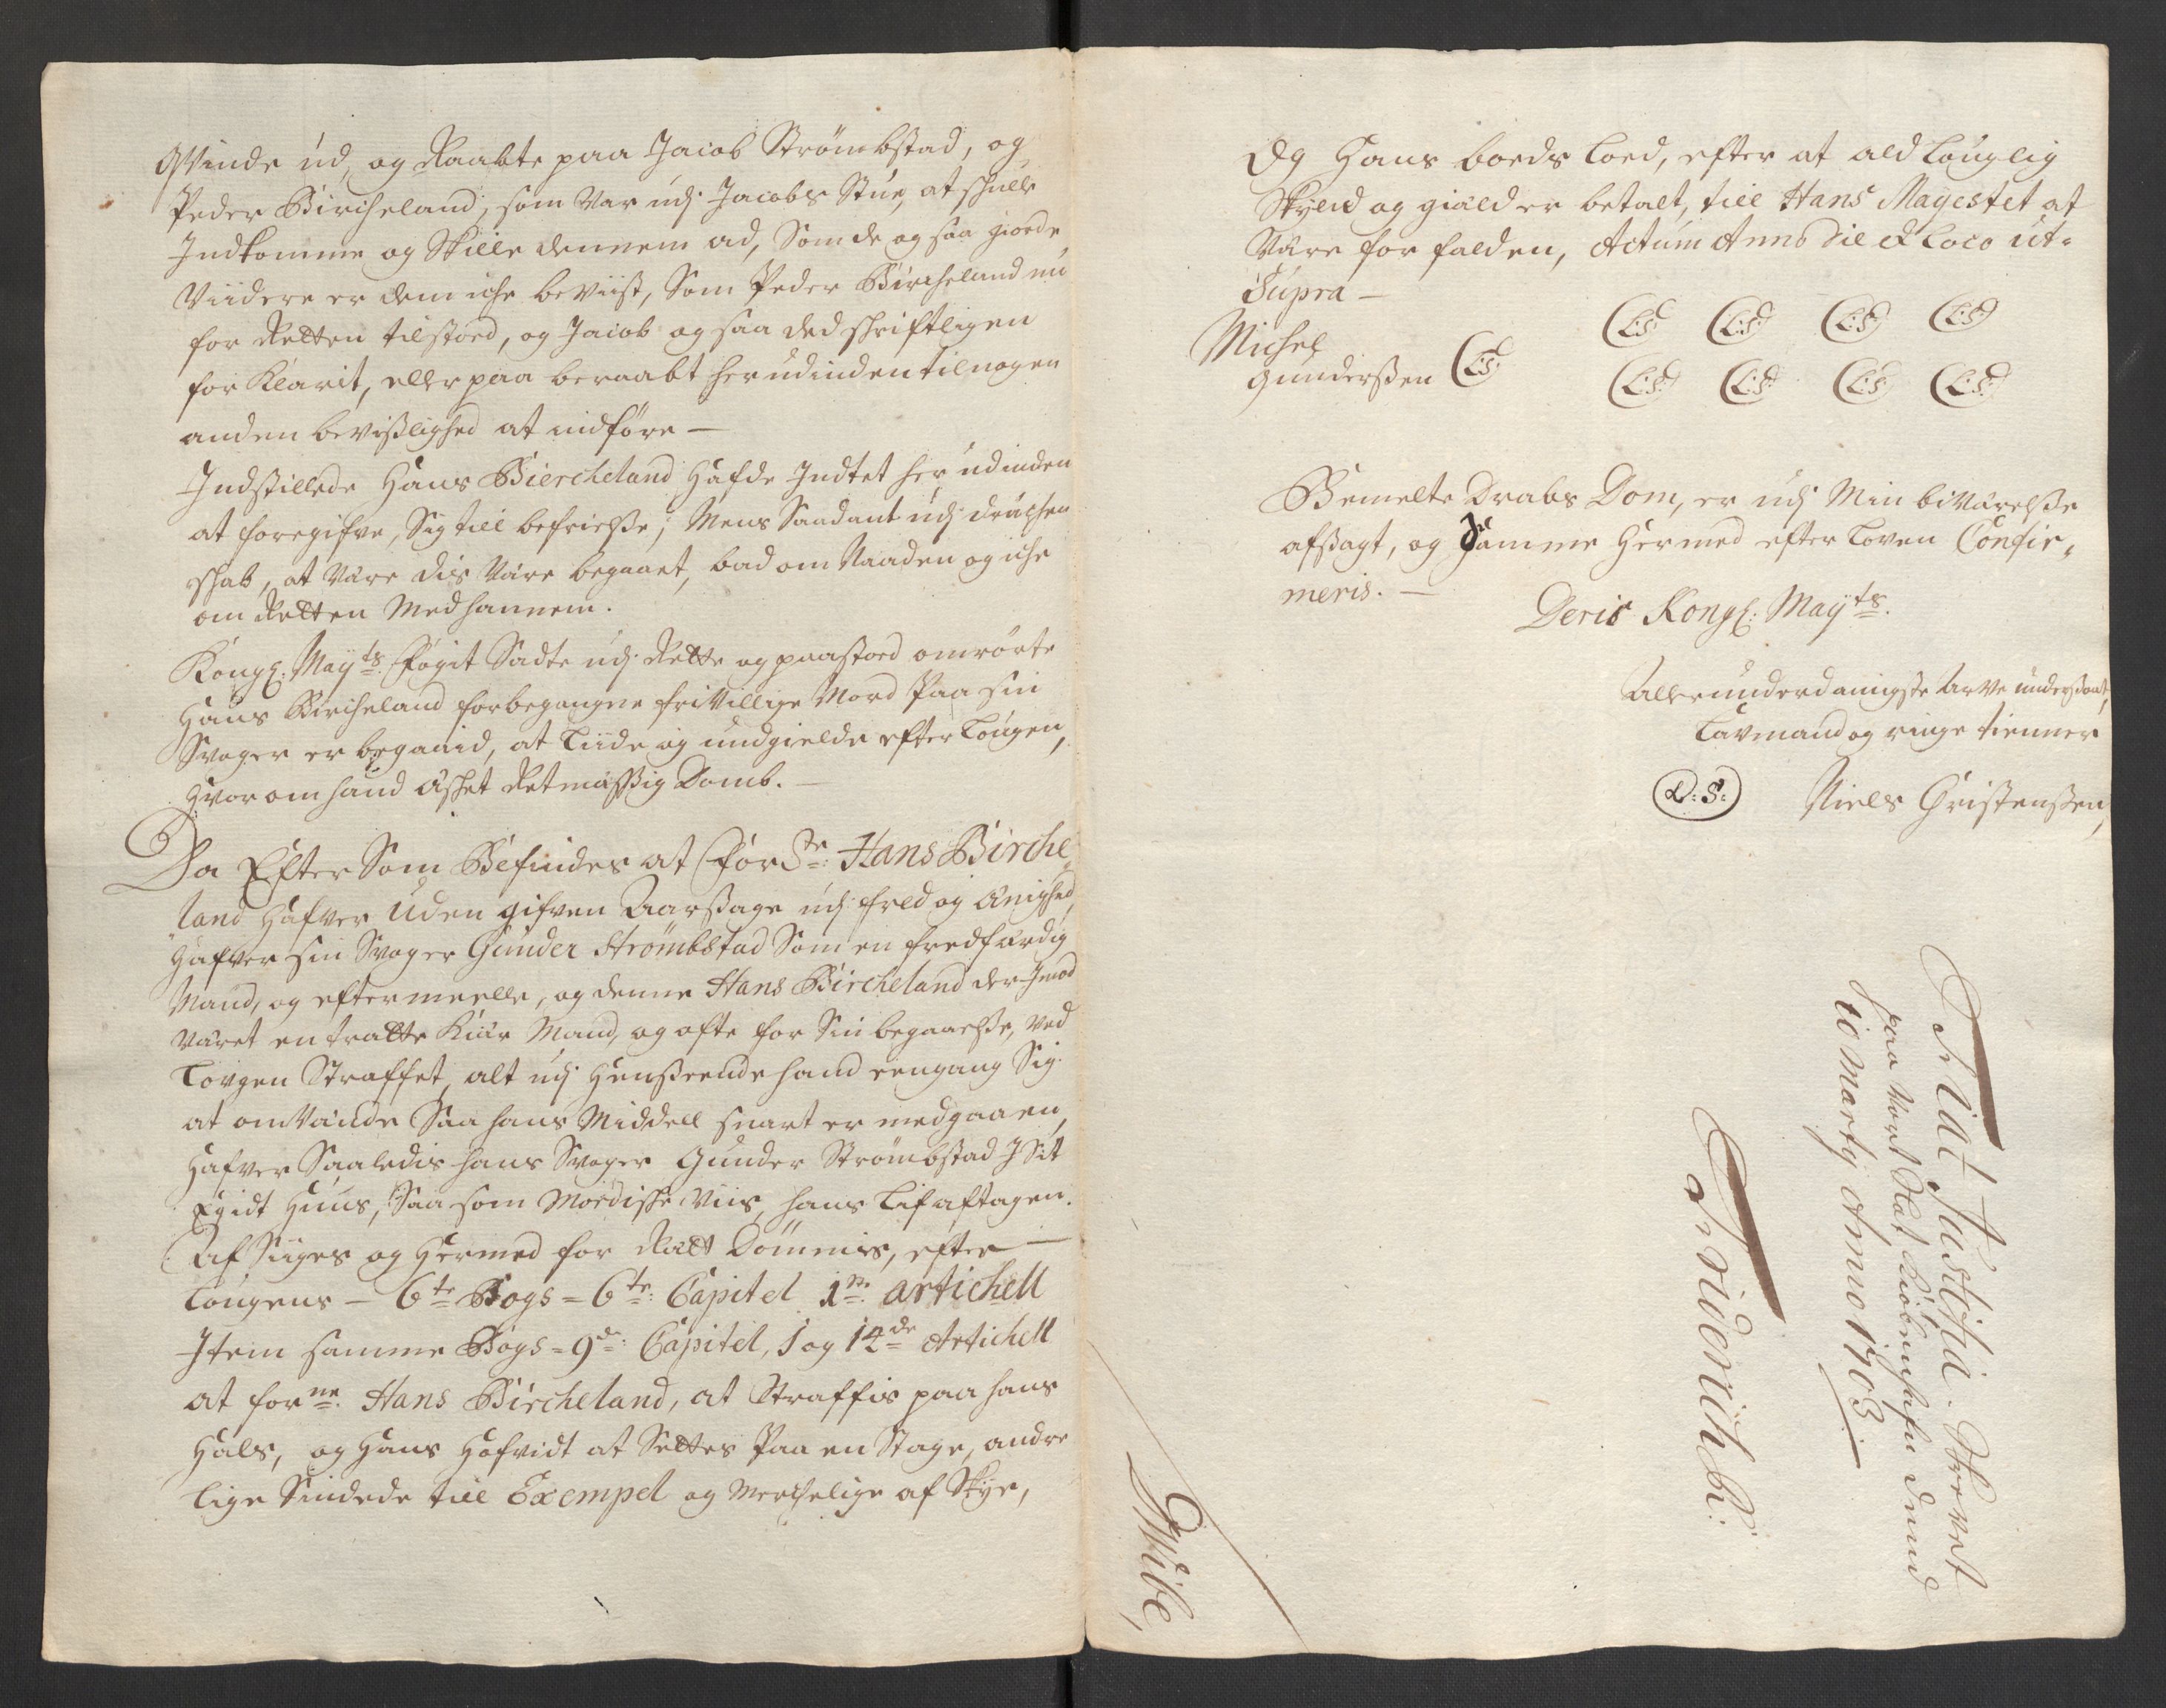 Qvinde ud, og Raabte paa Jacob Strömbstad, og
Peder Bircheland, som var udj Jacobs Stue, at schulle
Indkomme og Skille dennem ad, Som de og saa giorde
Viidere er dem iche beviist, Som Peder Bircheland nu
for Retten tilstoed, og Jacob og saa ded schriftligen
for Klarit, eller paa beraabt herudinden til nogen
anden bevislighed at indföre —
Indstillede Hans Biercheland Hafde Indtet her udinden
at foregifve, Sig till befrielsse; Mens Saadant udj druchen
schab, at være dis være begaaet, bad om Naaden og iche
om Retten Med hannem.
Kongl: Mayts Fogit Sadte udj Rette og paastoed omrörte
Hans Bircheland forbegangne friVillige Mord Paa sin
Svoger er begaaid, at Liide og undgielde efter Lougen,
Hvorom hand æschet Retmæssig Domb. —
Da Efter Som Befindes at Forde: Hans Birche,,
land Hafver Uden gifven Aarsage udj fred og Enighed,
Hafver sin Svoger Gunder Strömbstad Som en fredfærdig
Mand, og eftermeelle, og denne Hans Bircheland der Imod
været en trætte Kiær Mand, og ofte for Sin begaaelsse, ved
Lovgen Straffet, alt udj Henseende hand eengang Sig
at omvænde Saa hans Middell snart er medgaaen,
Hafver Saaledis hans Svoger Gunder Strömbstad I Sit
Egidt Huus, Saa som Mordische Viis, hans Lif aftagen.
Af Siiges og Hermed for Rætt Dömmes, efter —
Lougens — 6te Bogs = 6te: Capitel 1ste artichell
Item samme Bogs = 9de: Capitel, 1 og 14de Artichell
at forne. Hans Bircheland, at Straffis paa hans
Hals, og Hans Hofvidt at Settes Paa en Stage, andre
lige Sindede till Exempel og Merchelige af Skye,
Og Hans boeds Loed, efter at ald Louglig
Skyld og giæld er betalt, till Hans Mayestet at
være for falden, Actum Anno Die et Loco ut=
Supra —
Michel
Gunderssen L:S:
L:S: L:S: L:S: L:S:
L:S: L:S: L:S: L:S:
Bemelte Drabs Dom, er udj Min biværelsse
afsagt, og Samme Hermed efter Loven Confir,
meris. —
Deris Kongl: Mayts.
Allerunderdanigste Arve undersaat,
Lavmand og ringe tienner
L:S: Niels Christenssen,
Fiat Justitia. Skrevet
paa vort Slot Kiöbenhafn dend
10 Martij Anno 1703
Friderich R:
Wibe,